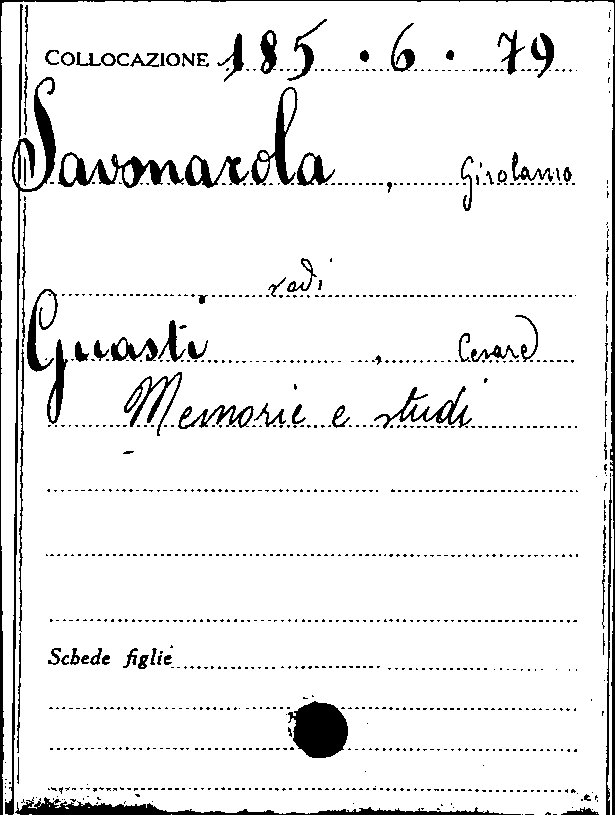 COLLOCAZIONE 185 . 6 . 79
Savonarola , Girolamo
vedi
Guasti , Cesare
Memorie e studi
Schede figlie